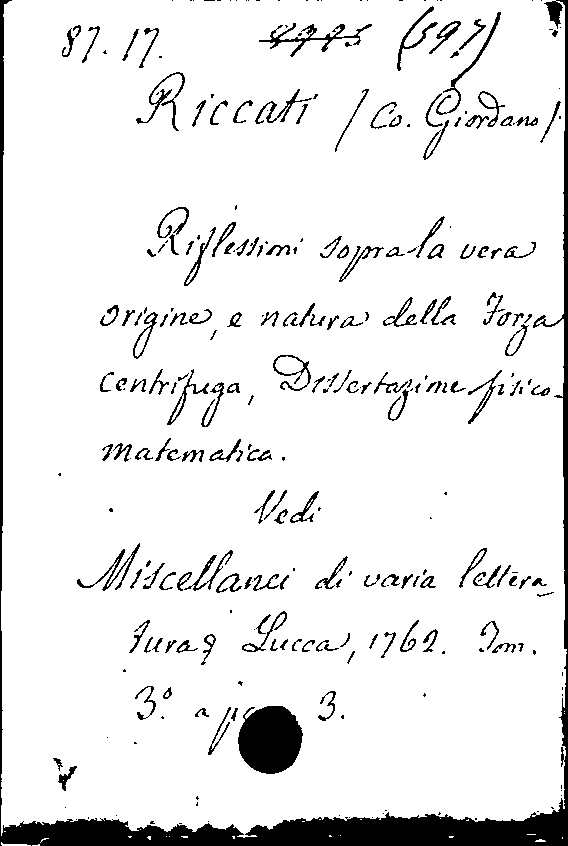 87. 17. (597)
Riccati / Co. Giordano /
Riflessioni sopra la vera
origine, e natura della Forza
centrifuga, Dissertazione fisico-
matematica.
Vedi
Miscellanei di varia lettera-
tura Lucca, 1762. Tom.
3.º a 3.